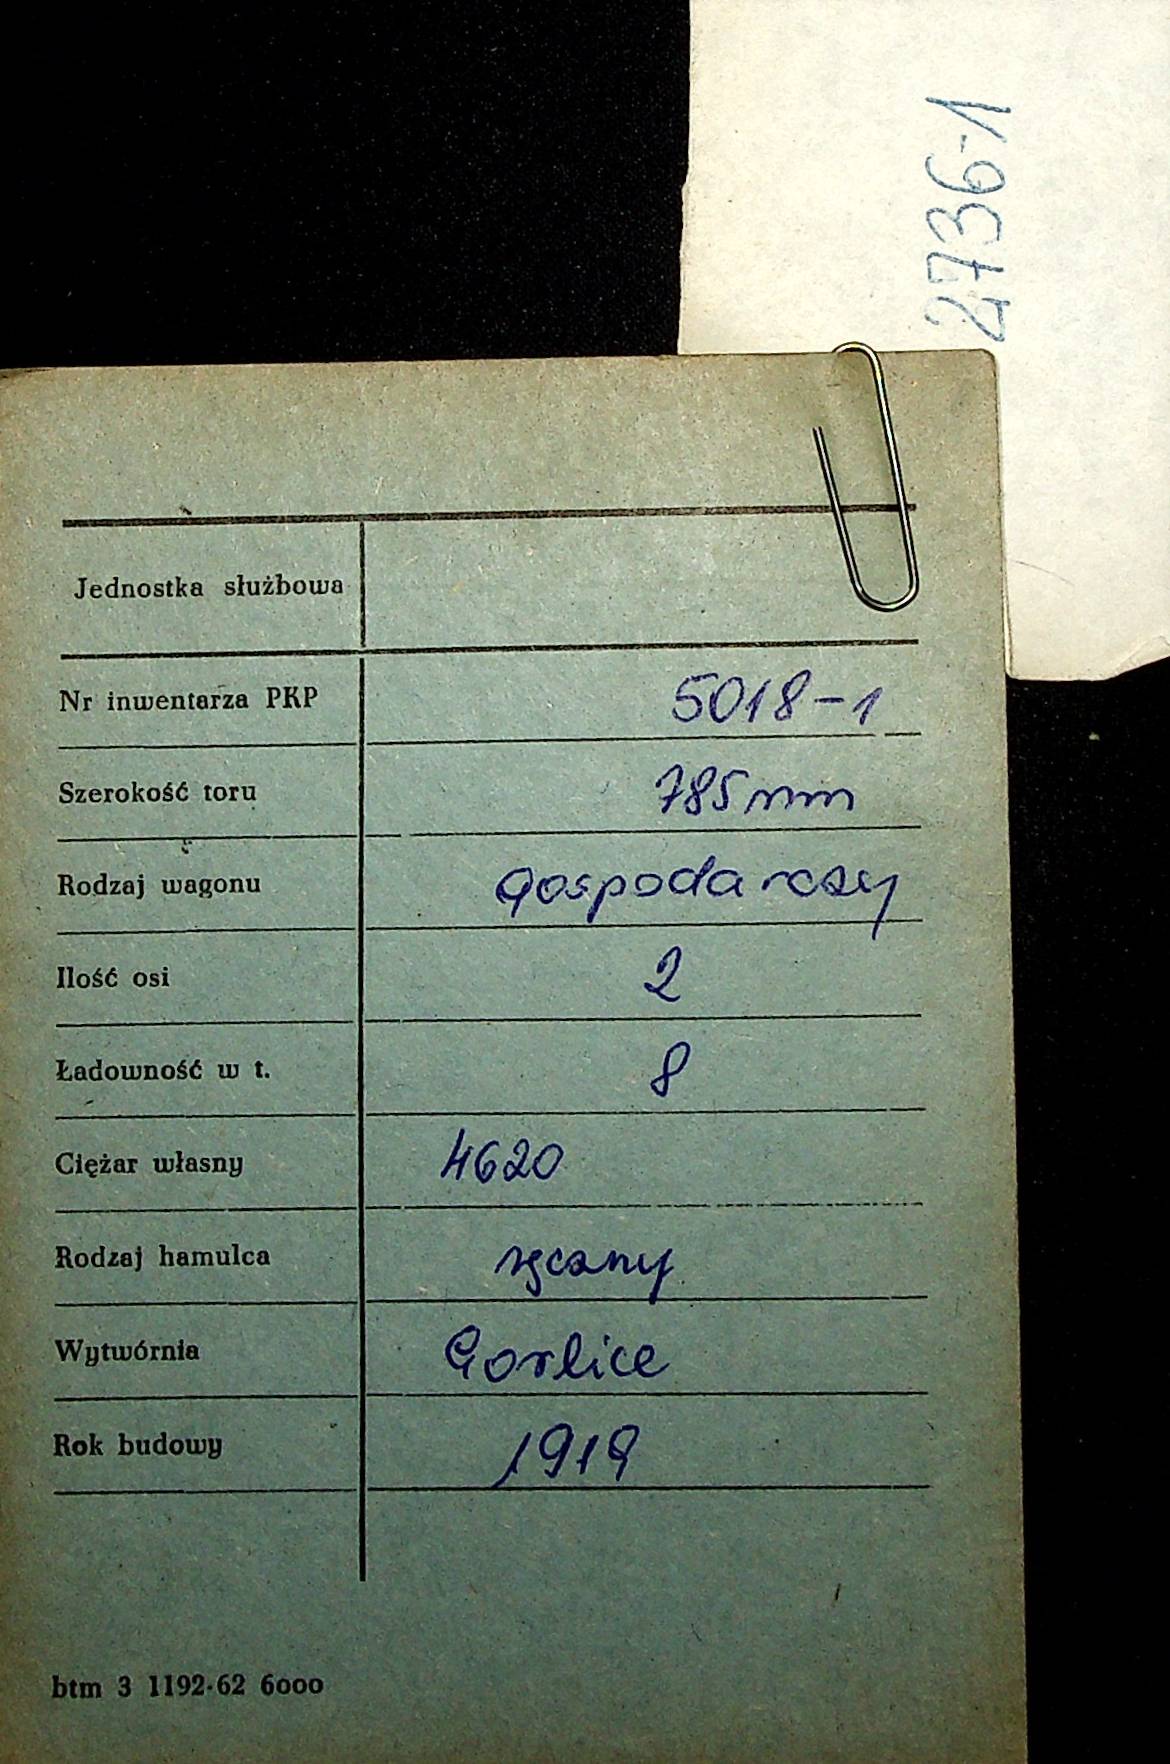 2736-1
Jednostka służbowa
Nr inwentarza PKP 5018-1
Szerokość toru 785 mm
Rodzaj wagonu Gospodarczy
Ilość osi 2
Ładowność w t. 8
Ciężar własny 4620
Rodzaj hamulca ręczny
Wytwórnia Gorlice
Rok budowy 1919
btm 3 1192-62 6000